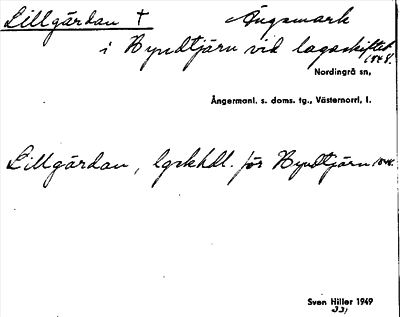 Lillgårdan † Ängsmark
i Byndtjärn vid lagaskiftet
1848.
Nordingrå sn,
Ångermanl. s. doms. tg., Västernorrl, l.
Lillgårdan, lgskhdl. för Byndtjärn 1848.
Sven Hiller 1949